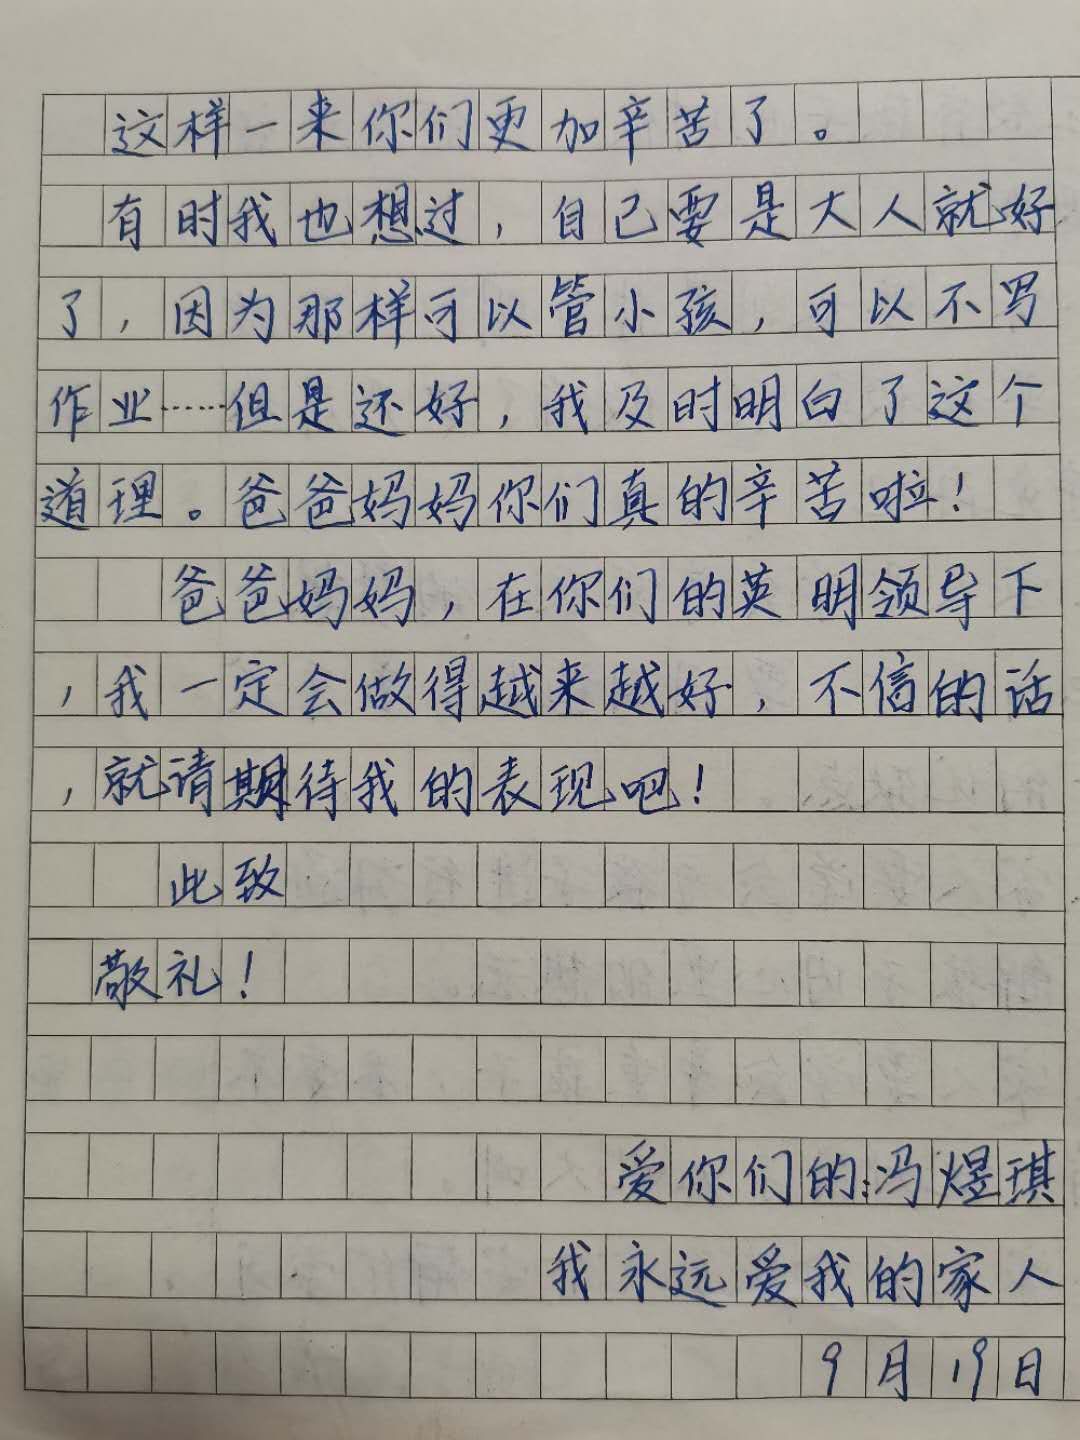 这样一来你们更加辛苦了。
有时我也想过，自己要是大人就好
了，因为那样可以管小孩，可以不写
作业……但是还好，我及时明白了这个
道理。爸爸妈妈你们真的辛苦啦！
爸爸妈妈，在你们的英明领导下
，我一定会做得越来越好，不信的话
，就请期待我的表现吧！
此致
敬礼！
爱你们的：冯煜琪
我永远爱我的家人
9月19日